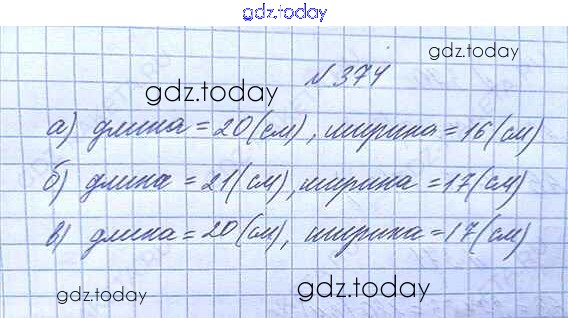 gdz.today
gdz.today
№ 374
gdz.today
а) длина = 20 (см), ширина = 16 (см)
б) длина = 21 (см), ширина = 17 (см)
в) длина = 20 (см), ширина = 17 (см)
gdz.today
gdz.today